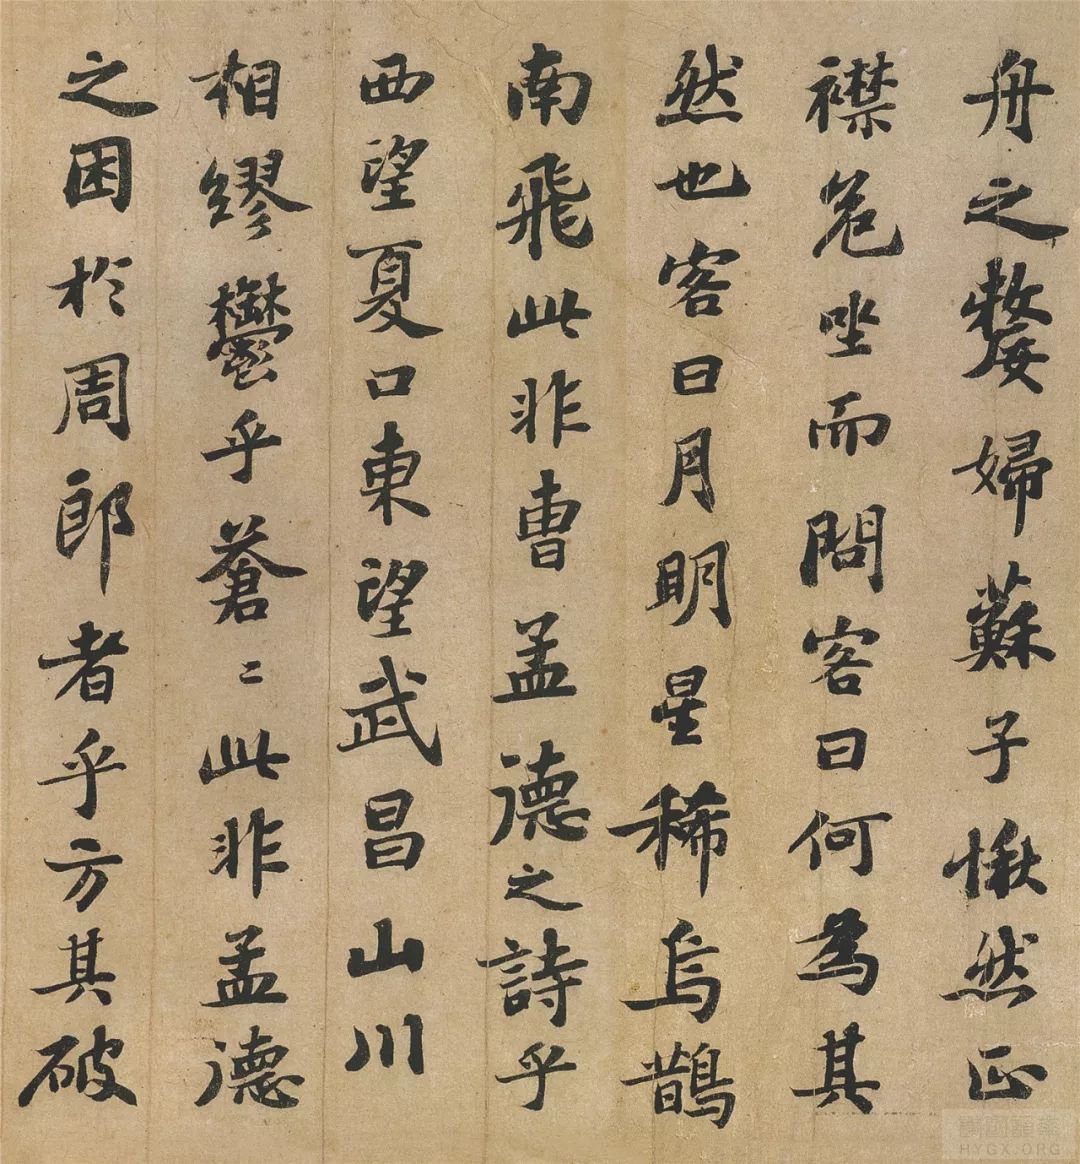 舟之嫠婦蘇子愀然正
襟危坐而問客曰何為其
然也客曰月明星稀烏鵲
南飛此非曹孟德之詩乎
西望夏口東望武昌山川
相繆鬱乎蒼〻此非孟德
之困於周郎者乎方其破
HYGX.ORG